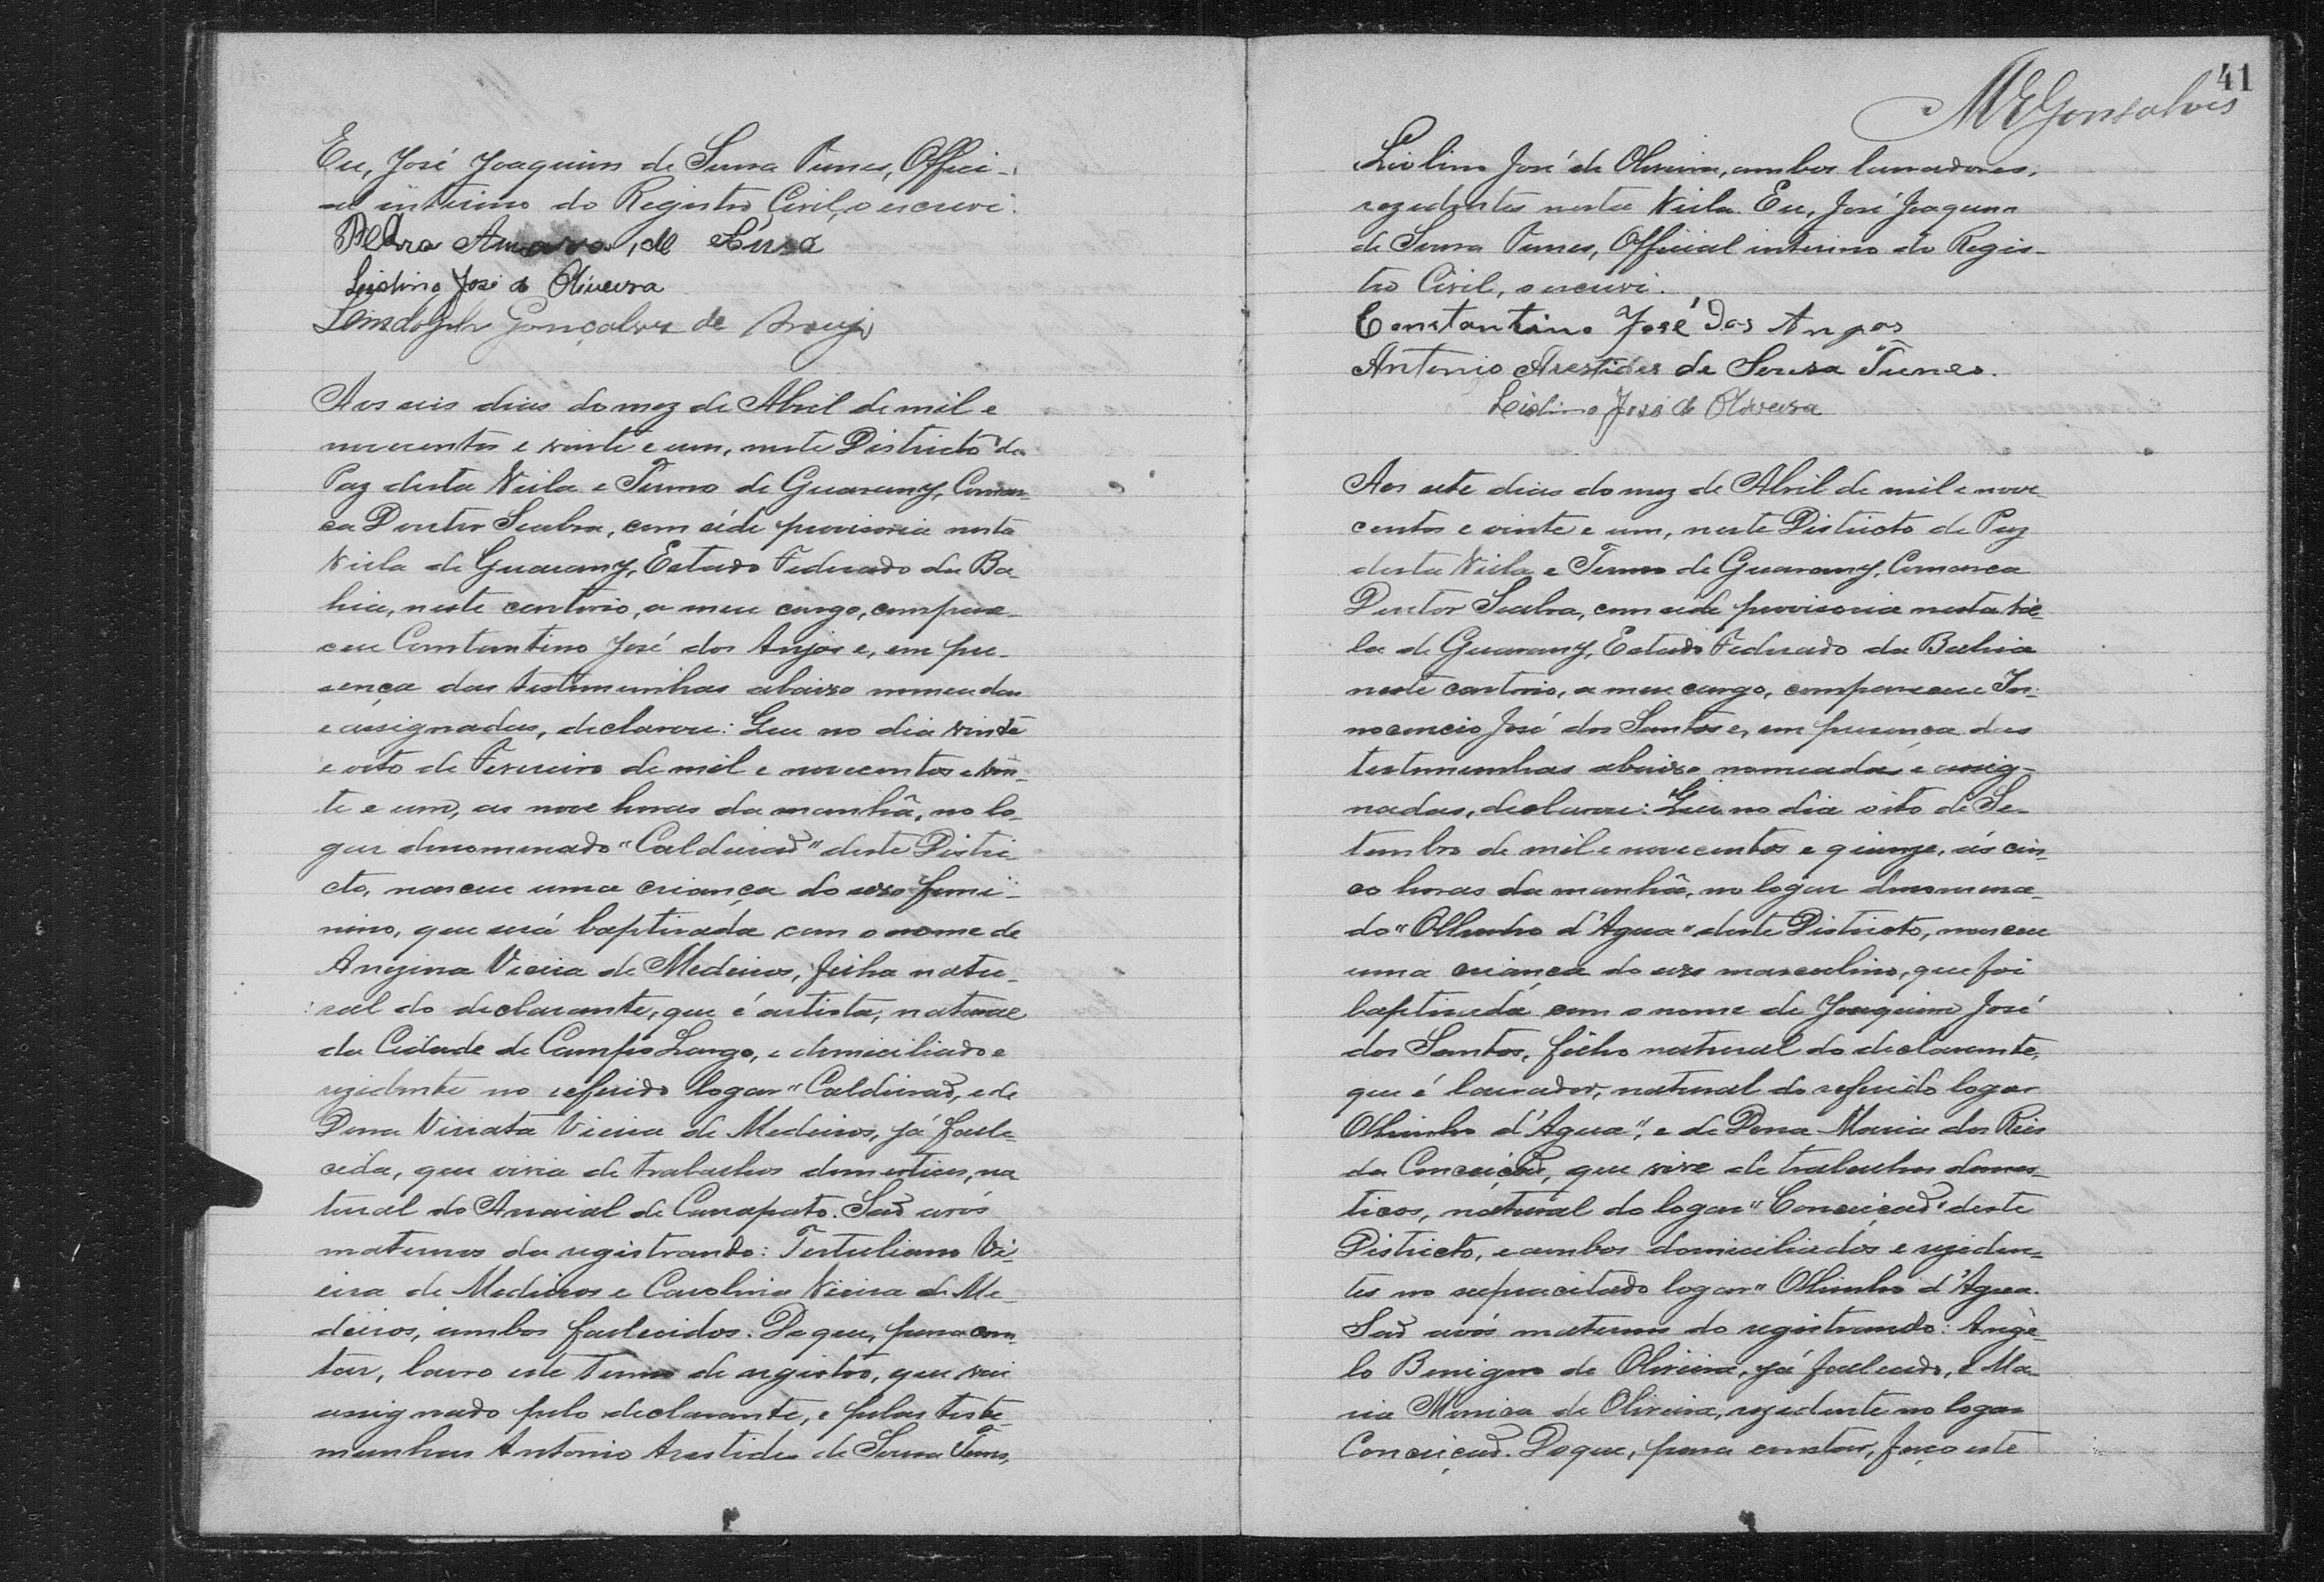 Eu, José Joaquim de Sousa Tunes, Offici-
al interino do Registro Civil, o escrevi.
Pedro Amaro de
José de Oliveira
Lindolpho Gonçalves de Araujo
Aos seis dias do mez de Abril de mil e
novecentos e vinte e um, neste Districto da
Paz desta Villa e Termo de Guarany, Comar-
ca Doutor Seabra, com séde provisoria nesta
Villa de Guarany, Estado Federado da Ba-
hia, neste cartorio, a meu cargo, compare-
ceu Constantino José dos Anjos e, em pre-
sença das testimunhas abaixo nomeadas
e assignadas, declarou: Que no dia vinte
e oito de Fevereiro de mil e novecentos e vin-
te e um, as nove horas da manhã, no lo-
gar denominado "Caldeirão" deste Distri-
cto, nasceu uma criança do sexo femi-
nino, que será baptisada com o nome de
Angina Vieira de Medeiros, filha natu-
ral do declarante, que é artista, natural
da Cidade de Campo Largo, e domiciliado e
rezidente no referido logar "Caldeirão, e de
Dona Viriata Vieira de Medeiros, já falle-
cida, que vivia de trabalhos domesticos, na
tural do Arraial de Carrapato. São avós
maternos da registranda: Tertuliano Vi-
eira de Medeiros e Carolina Vieira de Me-
deiros, ambos fallecidos. Do que, para cons
tar, lavro este termo de registro, que vai
assignado pelo declarante, e pelas teste-
munhas Antonio Arestides de Sousa Tunes,
41
MEGonsalves
José de Oliveira, ambos lavradores,
rezidentes nesta Villa. Eu, José Joaquim
de Sousa Tunes, Official interino do Regis-
tro Civil, o escrevi.
Constantino José Dos Anjos
Antonio Arestides de Sousa Tunes.
José de Oliveira
Aos sete dias do mez de Abril de mil e nove
centos e vinte e um, neste Districto de Paz
desta Villa e Termo de Guarany, Comarca
Doutor Seabra, com séde provisoria nesta Vil-
la de Guarany, Estado Federado da Bahia
neste cartorio, a meu cargo, compareceu In-
nocencio José dos Santos e, em presença das
testemunhas abaixo nomeadas e assig-
nadas, declarou: Que no dia oito de Se-
tembro de mil e novecentos e quinze, ás cin-
co horas da manhã, no logar denomina-
do "Olhinho d'Agua" deste Districto, nasceu
uma criança do sexo masculino, que foi
baptisada com o nome de Joaquim José
dos Santos, filho natural do declarante,
que é lavrador, natural do referido logar
Olhinho d'Agua", e de Dona Maria dos Reis
da Conceição, que vive de trabalhos domes-
ticos, natural do logar "Conceição" deste
Districto, e ambos domiciliados e reziden-
tes no supracitado logar "Olhinho d'Agua.
São avós maternos do registrando: Ange-
lo Benigno de Oliveira, já fallecido, e Ma-
ria Monica de Oliveira, rezidente no logar
Conceição. Do que, para constar, faço este